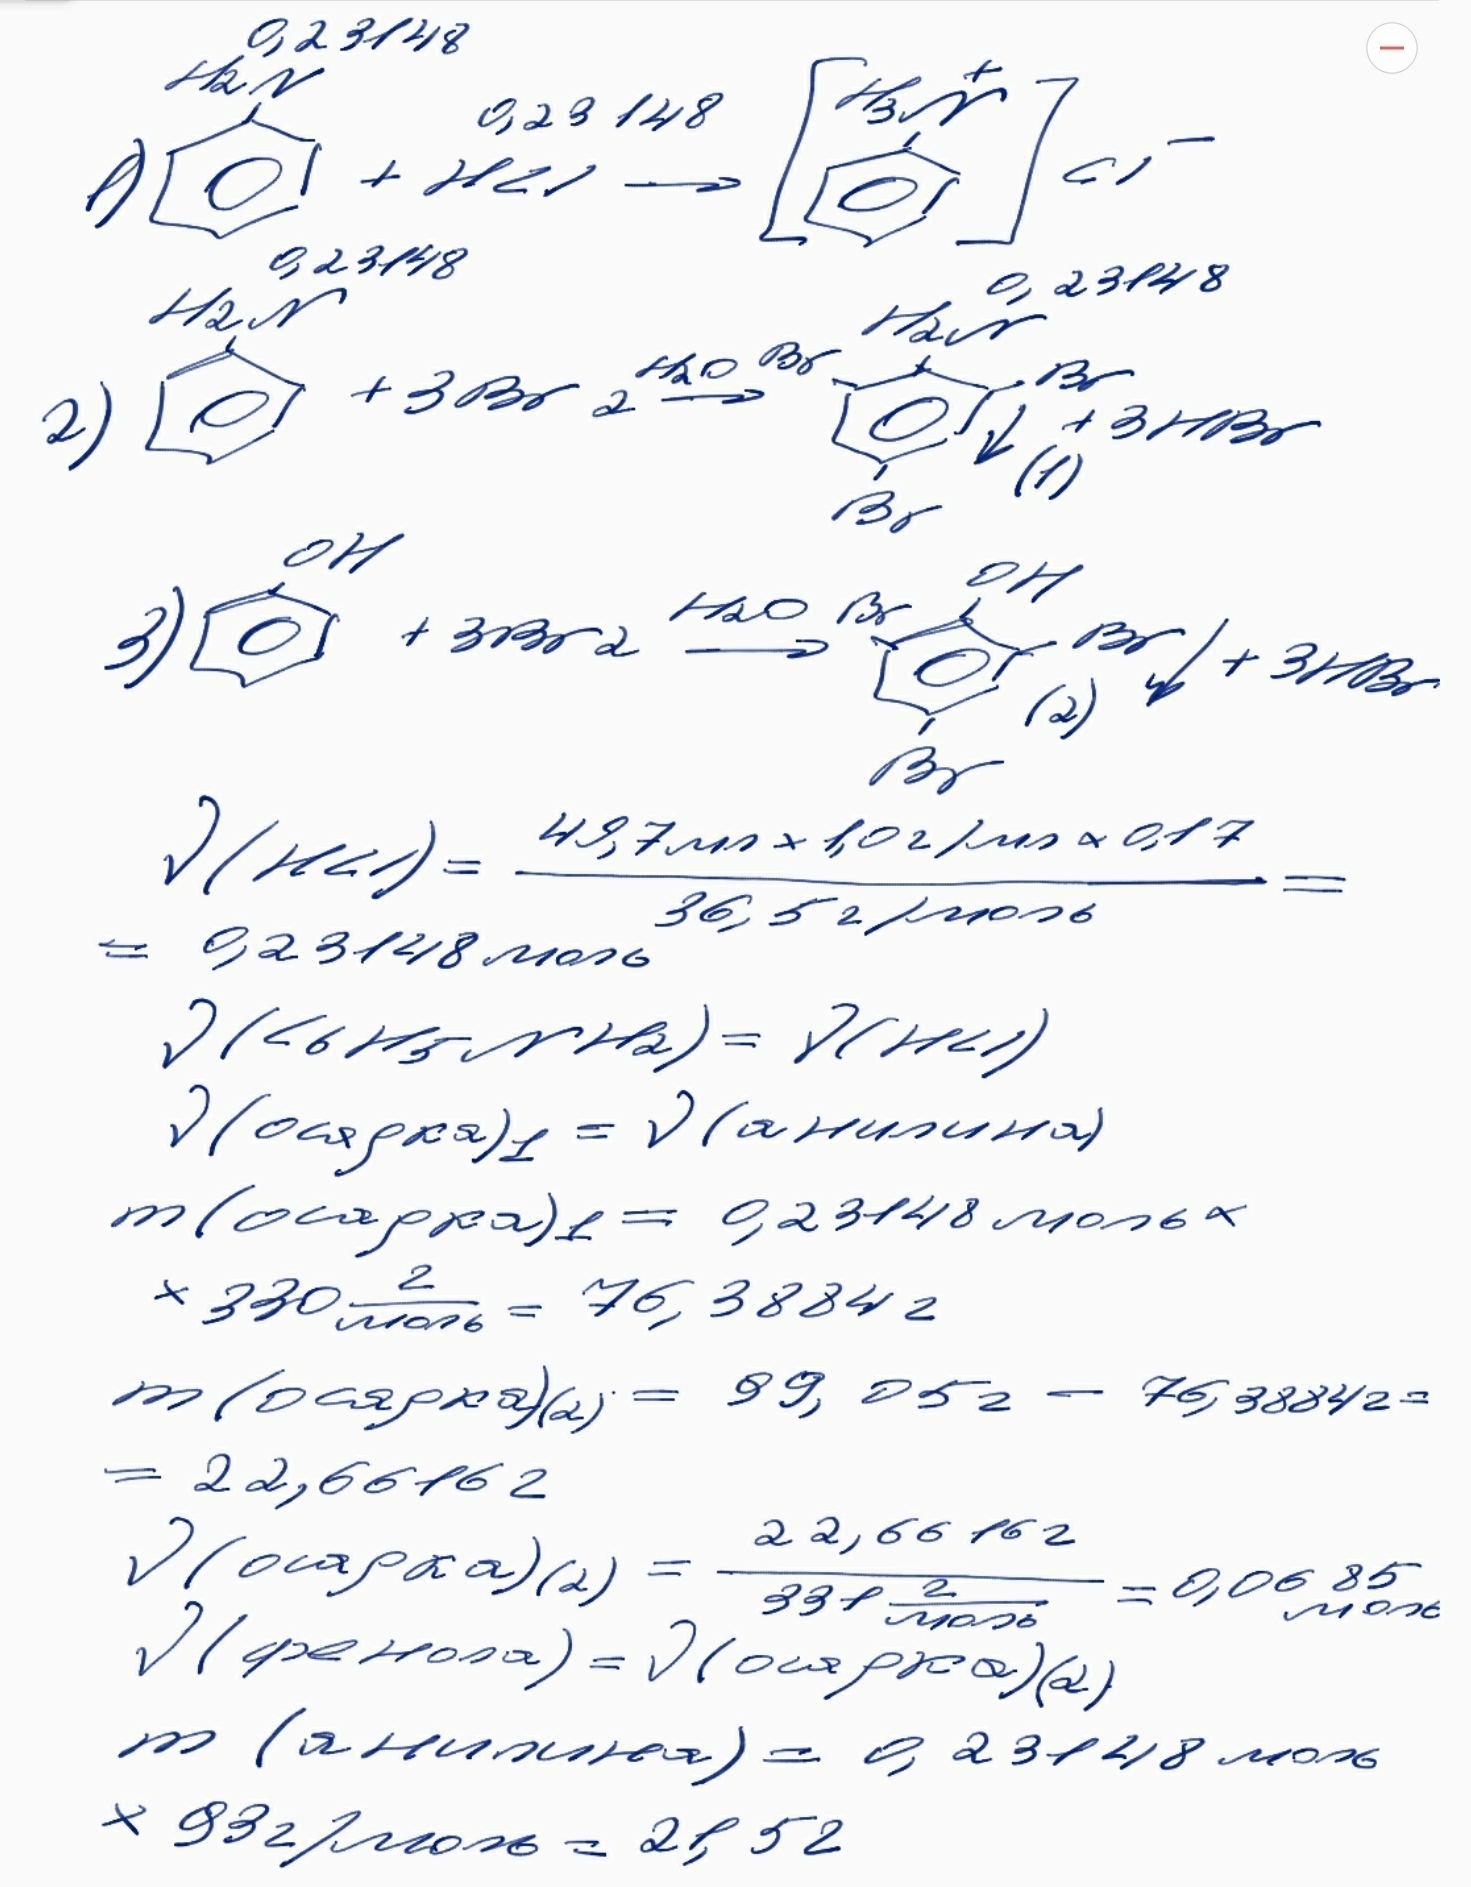 0,23148
H2N
0,23148
1) + HCl → [H3N+] Cl−
0,23148
H2N
0,23148
H2N
2) + 3Br2 H2O → Br Br ↓ + 3HBr
(1)
Br
OH
OH
3) + 3Br2 H2O → Br Br ↓ + 3HBr
(2)
Br
ν(HCl) = 49,7мл × 1,0г/мл × 0,17 / 36,5г/моль =
= 0,23148 моль
ν(C6H5NH2) = ν(HCl)
ν(осадка)1 = ν(анилина)
m(осадка)1 = 0,23148 моль ×
× 330 г/моль = 76,3884г
m(осадка)(2) = 99,05г − 76,3884г =
= 22,6616г
ν(осадка)(2) = 22,6616г / 331 г/моль = 0,0685 моль
ν(фенола) = ν(осадка)(2)
m (анилина) = 0,23148 моль
× 93г/моль = 21,5г